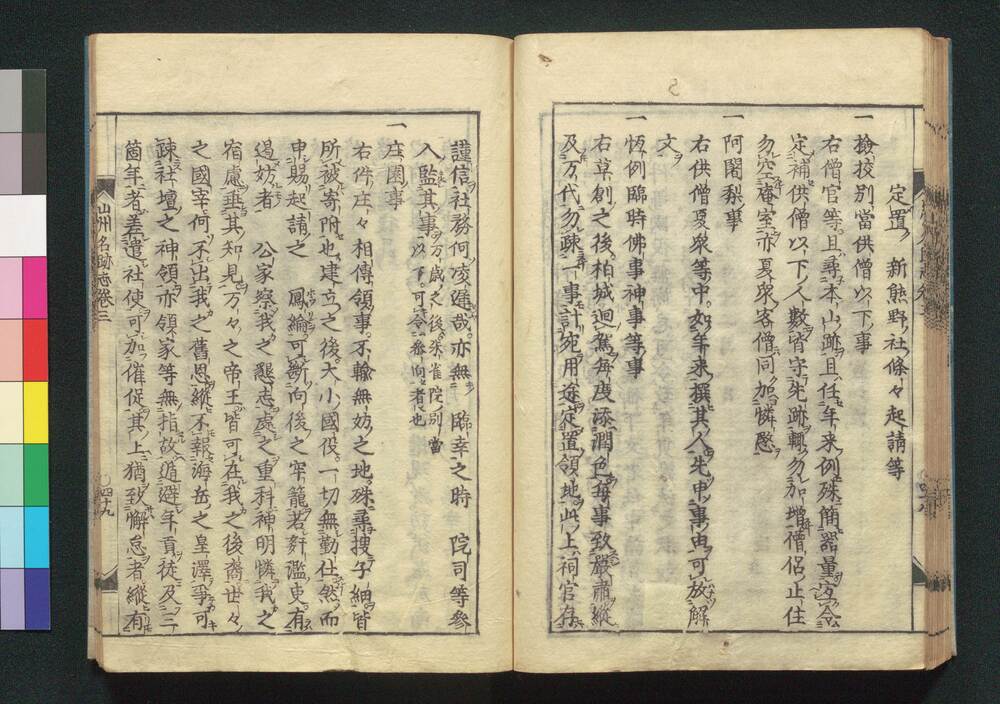 定置新熊野社條々起請等
一撿挍別當供僧以下事
右僧官等且尋本山跡且任年来例殊簡器量宜令
定補供僧以下人數皆守先跡輙勿加増僧侶止住
勿空菴室亦夏衆客僧同加憐愍
一阿闍梨事
右供僧夏衆等中如年来撰其人先申事由可放解
文
一恆例臨時佛事神事等事
右草創之後柏城廻駕毎度添潤色毎事致嚴肅縱
及万代勿疎一事計宛用途定置領地此上祠官存
謹信社務何凌遲哉亦無 臨幸之時 院司等參
入監其事万歲之後朱雀院別當以下可令參向者也
一庄園事
右件庄々相傳領事不輸無妨之地殊尋捜子細皆
所被寄附也建立之後大小國役一切無勤仕然而
申賜起請之 鳳綸可斷向後之窂籠若奸濫吏有
遏妨者 公家察我之懇志處之重科神明憐我之
宿慮垂其知見万々之帝王皆可在我之後裔世々
之國宰何不出我之舊恩縱不報海岳之皇澤爭可
疎社壇之神領亦領家等無指故遁避年貢徒及三
箇年者差遣社使可加催促其上猶致懈怠者縱有
山州名跡志卷三
四十九